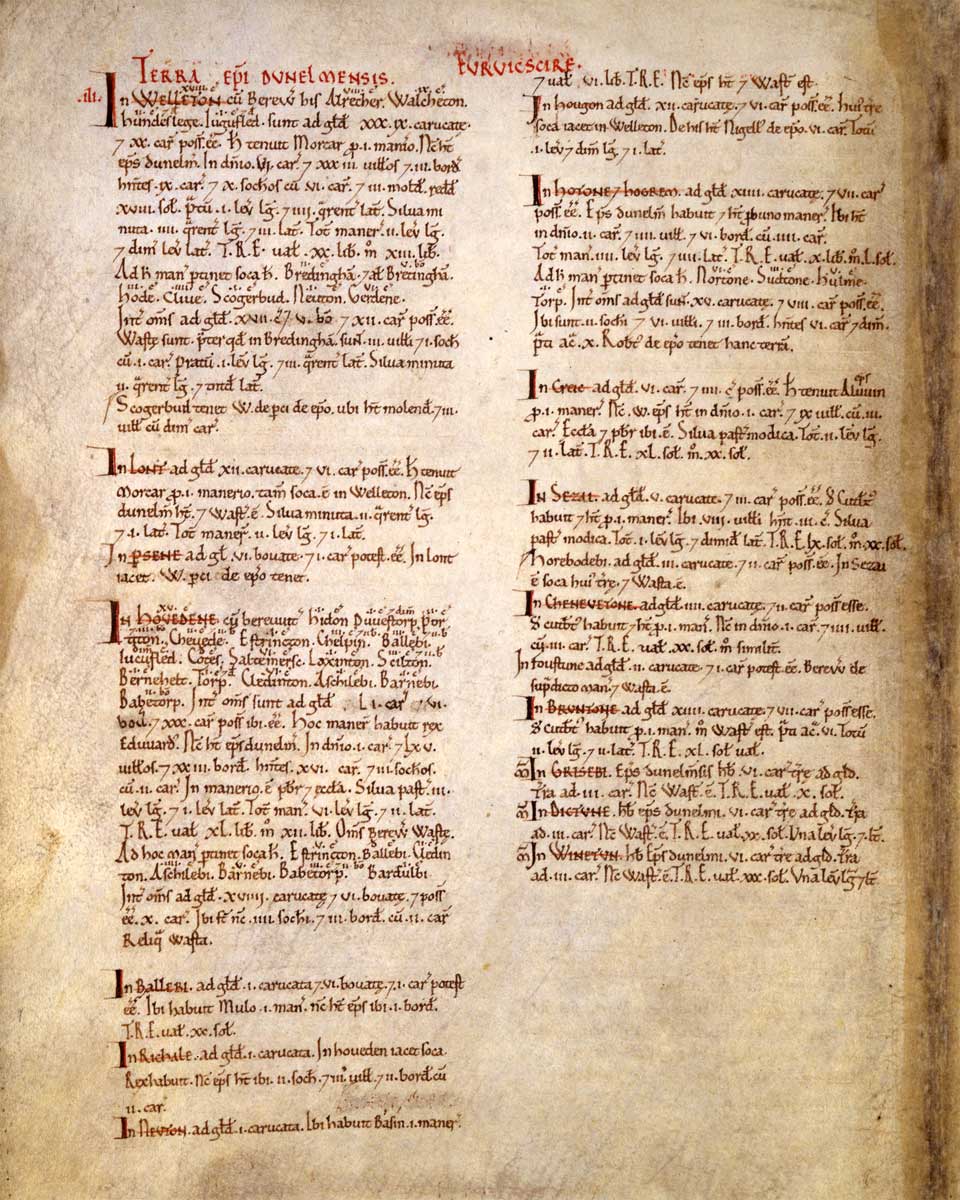 EURVICSCIRE.
TERRA EPI DUNELMENSIS.
.III. In WELLETON cū Berew his Alrecher. Walchecon.
hundeslege. Iugufled. sunt ad gld XXX.IX. carucatę.
7 XX. car poss.ēē. h̄ tenuit Morcar p.I. manio. Nc ht
eps dunelm. In dn̄io. VI. car. 7 XXXIII. uillos 7 III. bord
hntes. IX. car. 7 X. sochos cū VI. car. 7 III. molend. redd
XVIII. sol. p̄tū. I. lev lg. 7 IIII. qrent lat. Silua mi
nuta. IIII. qrent lg. 7 III. lat. Tot maner. II. lev lg.
7 dim lev lat. T.R.E. ual. XX. lib. m̊ XIII. lib.
Ad h̄ man ptinet soca h̄. Bredinghā. 7 al Bretinghā.
hode. Cliue. Scogerbud. Neutón. Gerdene.
Int om̄s ad gld. XVII. c̄ 7 V. bō 7 XII. car poss.ēē.
Wastę sunt. p̄ter qd in Bredinghā. sun. III. uilli 7 I. soch
cū. I. car. Pratū. I. lev lg. 7 III. qrent lat. Silua minuta
II. qrent lg. 7 tntd lat.
Scogerbud tenet W. de pci de epo. ubi ht molend. 7 III.
uill cū dim car.
In LONT ad gld XII. carucatę. 7 VI. car poss.ēē. h̄ tenuit
Morcar p.I. manerio. tam̄ soca.ē in Welleton. Nc eps
dunelm ht. 7 Wast.ē. Silua minuta. II. qrent lg.
7 I. lat. Tot maner. II. lev lg. 7 I. lat.
In PSENE ad gld. VI. bouatę. 7 I. car potest.ēē. In lont
iacet. W. pci de epo tenet.
In HOVEDENE cū berewit hidon Duuestorp. Por
titon. Cheuede. Estrincton. Chelpin. Ballebi.
lucufled. Cotes. Saltemersc. Loxinton. Sciltón.
Bernehelt. Torp. Cledinton. Aschilebi. Barnebi.
Babetorp. Int om̄s sunt ad gld LI. car 7 VI.
bou. 7 XXX. car poss ibi.ēē. Hoc maner habuit rex
Eduuard. Nc ht eps dunelm. In dn̄io. I. car. 7 LX V.
uillos. 7 XXIII. bord. hntes. XVI. car. 7 III. sochos.
cū. II. car. In manerio.ē pbr 7 ęccla. Silua past. III.
lev lg. 7 I. lev lat. Tot man. VI. lev lg. 7 II. lat.
T.R.E. ual XL. lib. m̊ XII. lib. Om̄s Berew Wastę.
Ad hoc man ptinet soca h̄. Estrincton. Ballebi. Cledin
ton. Aschilebi. Barnebi. Babetorp. Bardulbi
Int om̄s ad gld. XVIIII. carucatę 7 VI. bouatę. 7 poss
ēē. X. car. Ibi st nc. IIII. sochi. 7 III. bord. cū. II. car
Reliq Wasta.
In BALLEBI. ad gld. I. carucata 7 VI. bouatę. 7 I. car potest
ēē. Ibi habuit Mulo. I. man. nc ht eps ibi. I. bord.
T.R.E. ual. XX. sol.
In RICHALE. ad gld. I. carucata. In houeden iacet soca.
Rex habuit. Nc eps ht ibi. II. soch. 7 III. uill. 7 II. bord cū
II. car.
In NEUTON. ad gld. I. carucata. Ibi habuit Basin. I. maner.
7 ual. VI. lib. T.R.E. Nc eps ht 7 Wast est.
In hougon ad gld. XII. carucatę. 7 VI. car poss.ēē. hui tre
soca iacet in Welleton. De his ht Nigell de epo. VI. car. Totū
.I. lev 7 dim lg. 7 I. lat.
In HOTONE 7 HOGREM. ad gld. XIIII. carucatę. 7 VII. car
poss.ēē. Eps dunelm habuit 7 ht p uno maner. Ibi ht
in dn̄io. II. car. 7 IIII. uill. 7 VI. bord. cū. IIII. car.
Tot man. IIII. lev lg. 7 IIII. lat. T.R.E. ual. X. lib. m̊. L. sol.
Ad h̄ man ptinet soca h̄. Nortone. Sudtone. Hulme.
Torp. Int om̄s ad gld sun. XV. carucatę. 7 VIII. car poss.ēē.
Ibi sunt. II. sochi 7 VI. uilli. 7 III. bord. hntes VI. car 7 dim.
p̄ti ac. X. Robt de epo tenet hanc terrā.
In Creic ad gld. VI. car. 7 IIII. c̄ poss.ēē. h̄ tenuit Aluuin eps
p.I. maner. Nc. W. eps ht in dn̄io. I. car. 7 IX uill. cū. III.
car. Eccla 7 pbr ibi.ē. Silua past modica. Tot. II. lev lg.
7 II. lat. T.R.E. XL. sol. m̊. XX. sol.
In SEZAI. ad gld. V. carucatę. 7 III. car poss.ēē. S Cutbt
habuit 7 ht p.I. maner. Ibi VIII. uilli hnt. III. c̄. Silua
past modica. Tot. I. lev lg. 7 dimid lat. T.R.E. LX. sol. m̊. XX. sol.
Horebodebi. ad gld. III. carucatę. 7 II. car poss.ēē. In Sezai
ē soca hui tre. 7 Wasta.ē.
In CHENEVETONE. ad gld. IIII. carucatę. 7 II. car poss esse.
S cutbt habuit 7 ht p.I. man. Nc in dn̄io. I. car. 7 IIII. uill.
cū. III. car. T.R.E. ual. XX. sol. m̊ similit.
In foustune ad gld. II. carucatę. 7 I. car potest.ēē. Berew de
supdicto man. 7 Wasta.ē.
In BRUNTONE ad gld XIIII. carucatę. 7 VII. car poss esse.
S cutbt habuit p.I. man. m̊ Wast est. p̄ti ac. VI. Totū
II. lev lg. 7 II. lat. T.R.E. XL. sol ual.
In GRISEBI. Eps dunelmsis hb. VI. car tre ad gld.
Tra ad. III. car. Nc Wast.ē. T.R.E. ual. X. sol.
In DICTUNE. hb eps dunelmi. VI. car tre ad gld. Tra
ad. III. car. Nc Wast.ē. T.R.E. ual. XX. sol. Una lev lg. 7 lt.
In WINETUN. hb Eps dunelmi. VI. car tre ad gld. Tra
ad. III. car. Nc Wast.ē. T.R.E. ual. XXX. sol. Una lev lg 7 lt.